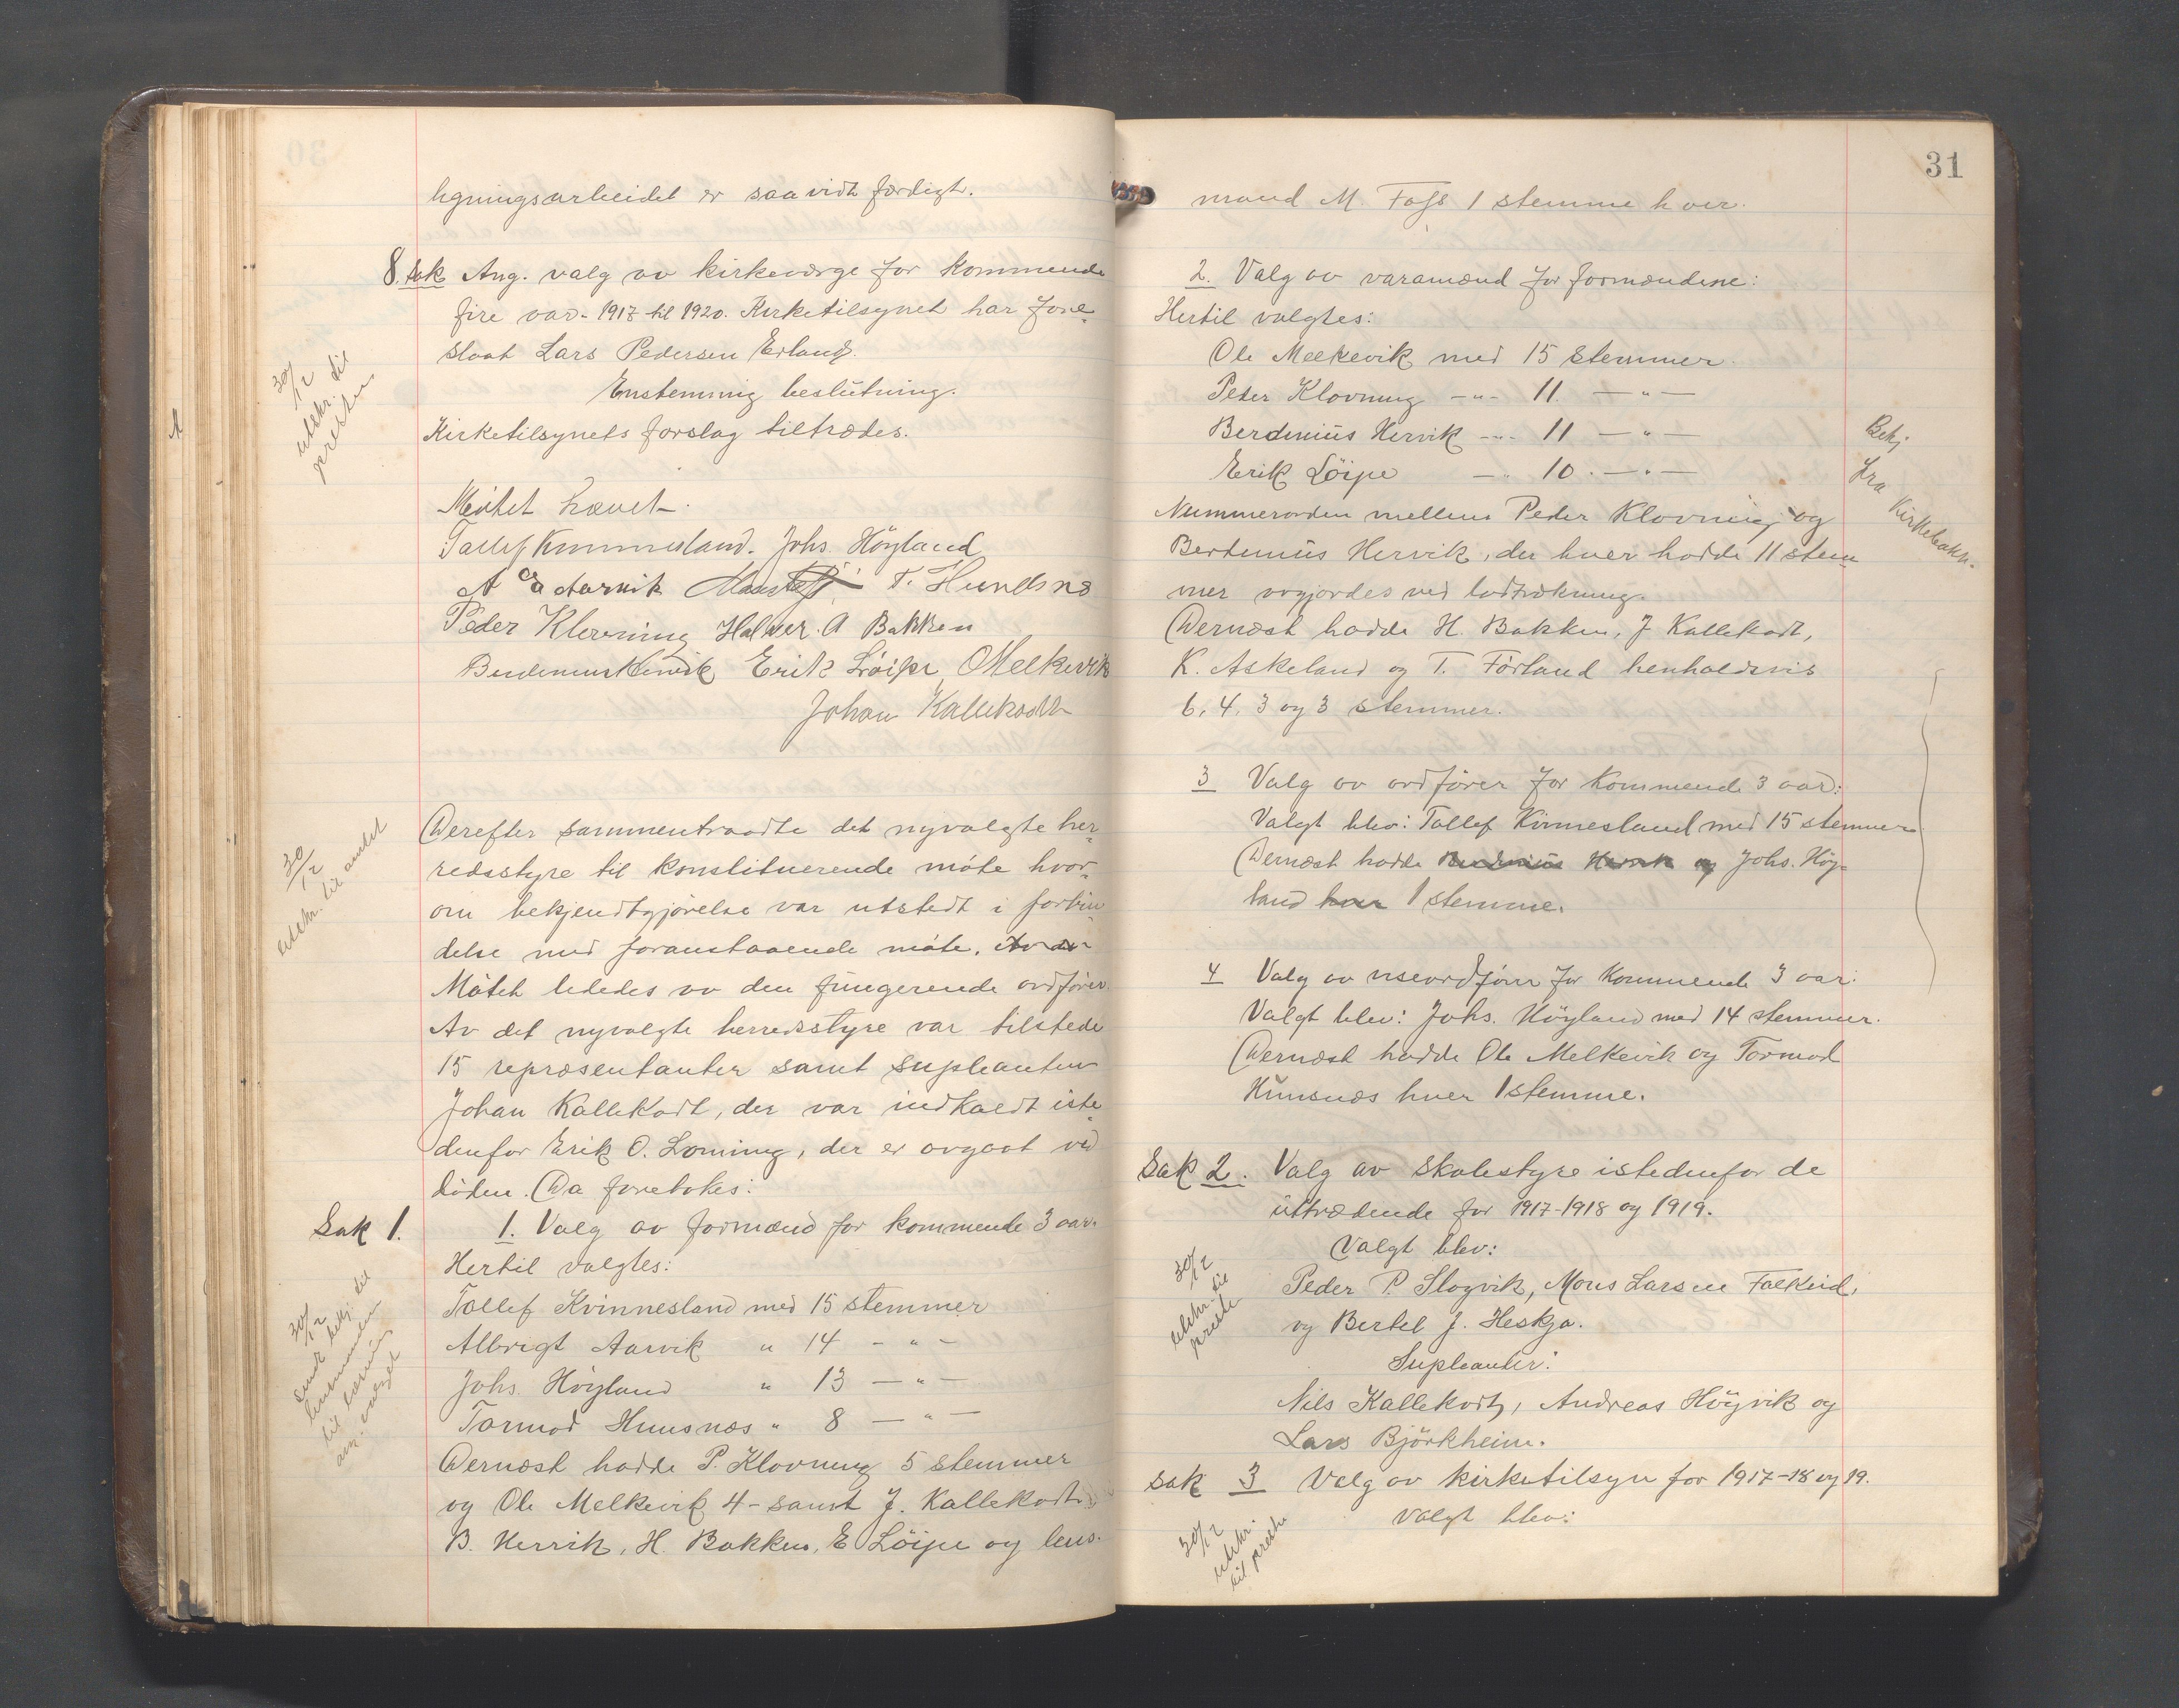 ligningsarbeidet er saavidt færdigt.
8. sak Ang. valg av kirkeværge for kommende
fire aar - 1917 til 1920. Kirketilsynet har fore-
slaat Lars Pedersen Erland.
30/12 utskr. til presten
Enstemmig beslutning.
Kirketilsynets forslag tiltrædes.
Møtet hævet.
Tollef Kvinnesland. Johs. Höyland
A Aarvik T. Hundsnes
Peder Klovning Halvor. A Bakken
Berdinius Hervik Erik Löipe, O Melkevik
Johan Kallekodt
30/12 utskr. til amtet
Derefter sammentraadte det nyvalgte her-
redsstyre til konstituerende møte hvor-
om bekjendtgjørelse var utstedt i forbin-
delse med foranstaaende møte.
Møtet lededes av den fungerende ordfører.
Av det nyvalgte herredsstyre var tilstede
15 repræsentanter samt supleanten
Johan Kallekodt, der var indkaldt iste-
denfor Erik O. Lonning, der er avgaat ved
døden. Da foretokes:
Sak 1. 1. Valg av formænd for kommende 3 aar.
Hertil valgtes:
Tollef Kvinnesland med 15 stemmer
Albrigt Aarvik " 14 - " -
Johs. Höyland " 13 - " -
Tormod Hunsnæs " 8 - " -
30/12 sendt bekj. til lensmanden til valget
Dernæst hadde P. Klovning 5 stemmer
og Ole Melkevik 4 - samt J. Kallekodt
B. Hervik, H. Bakken, E Löipe og lens-
31
mand M. Foss 1 stemme hver.
2. Valg av varamænd for formændene:
Hertil valgtes:
Ole Melkevik med 15 stemmer
Peder Klovning - " - 11. - " -
Berdinius Hervik - " - 11 - " -
Erik Löipe - " - 10. - " -
Bekj. fra Kirkebakk.
Nummerorden mellem Peder Klovning og
Berdinius Hervik, der hver hadde 11 stem-
mer avgjordes ved lodtrækning.
Dernæst hadde H. Bakken, J Kallekodt,
K. Askeland og T. Förland henholdsvis
6, 4, 3 og 3 stemmer.
3 Valg av ordfører for kommende 3 aar:
Valgt blev: Tollef Kvinnesland med 15 stemmer.
Dernæst hadde Berdinius Hervik og Johs. Höy-
land hver 1 stemme.
4 Valg av viseordfører for kommende 3 aar:
Valgt blev: Johs. Höyland med 14 stemmer.
Dernæst hadde Ole Melkevik og Tormod
Hunsnæs hver 1 stemme.
Sak 2. Valg av skolestyre istedenfor de
uttrædende for 1917-1918 og 1919.
Valgt blev:
30/12 utskr. til presten
Peder P. Slogvik, Mons Larsen Falkeid,
og Bertel J. Heskja.
Supleanter:
Nils Kallekodt, Andreas Høyvik og
Lars Björkheim.
Sak 3 Valg av kirketilsyn for 1917-18 og 19.
Valgt blev:
30/12 utskr. til presten